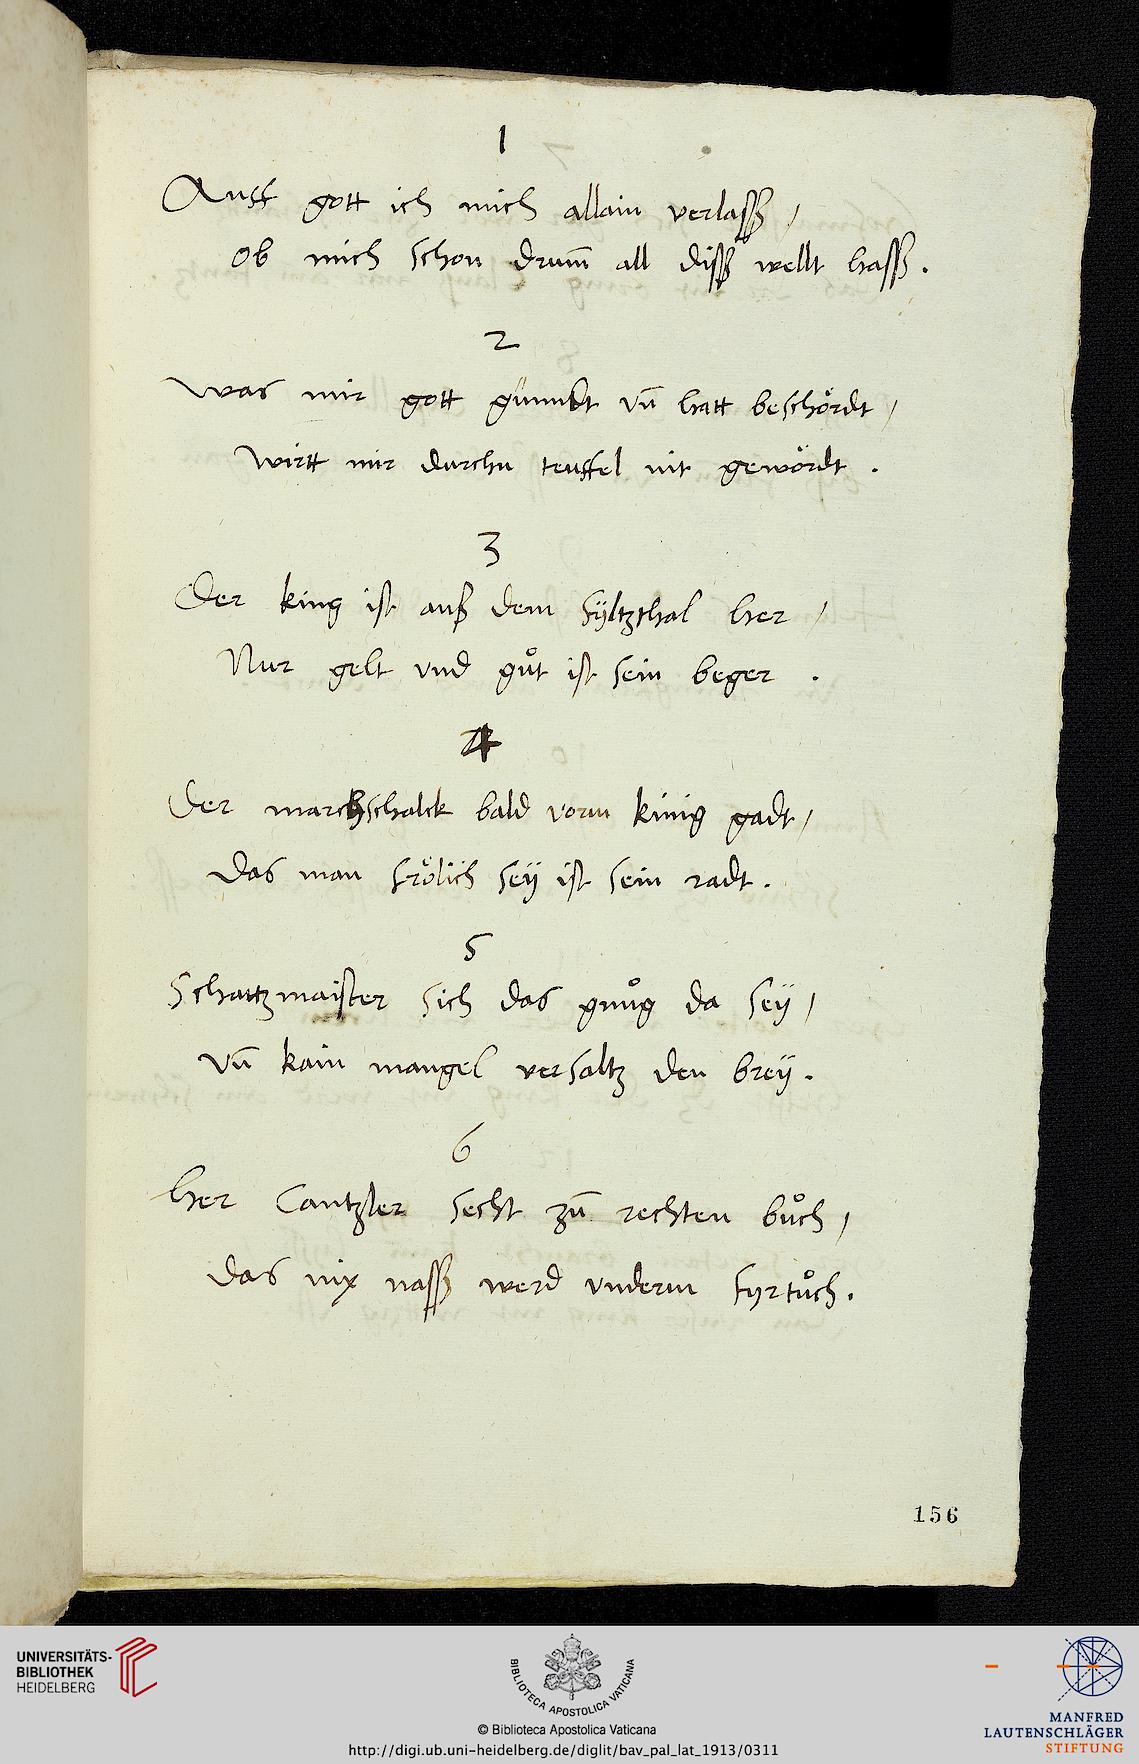 1
Auff gott ich mich allain verlassz /
Ob mich schon drum̄ all dissz wellt hassz .
2
Was mir gott gunndt vn̄ hatt beschördt /
Wirtt mir durchn teuffel nit gewördt .
3
Der king ist auß dem sÿltzthal her /
Nur gelt vnd gůt ist sein beger .
4
Der marchschalck bald vorm künig gadt /
Das man frölich seÿ ist sein radt .
5
Schattzmaister sich das gnůg da seÿ /
Vn̄ kain mangel versaltz den breÿ .
6
Her Cantzler secht zū rechten bůch /
das nix nassz werd vnderm fyrtůch .
156
UNIVERSITÄTS-
BIBLIOTHEK
HEIDELBERG
BIBLIOTECA APOSTOLICA VATICANA
© Biblioteca Apostolica Vaticana
http://digi.ub.uni-heidelberg.de/diglit/bav_pal_lat_1913/0311
MANFRED
LAUTENSCHLÄGER
STIFTUNG